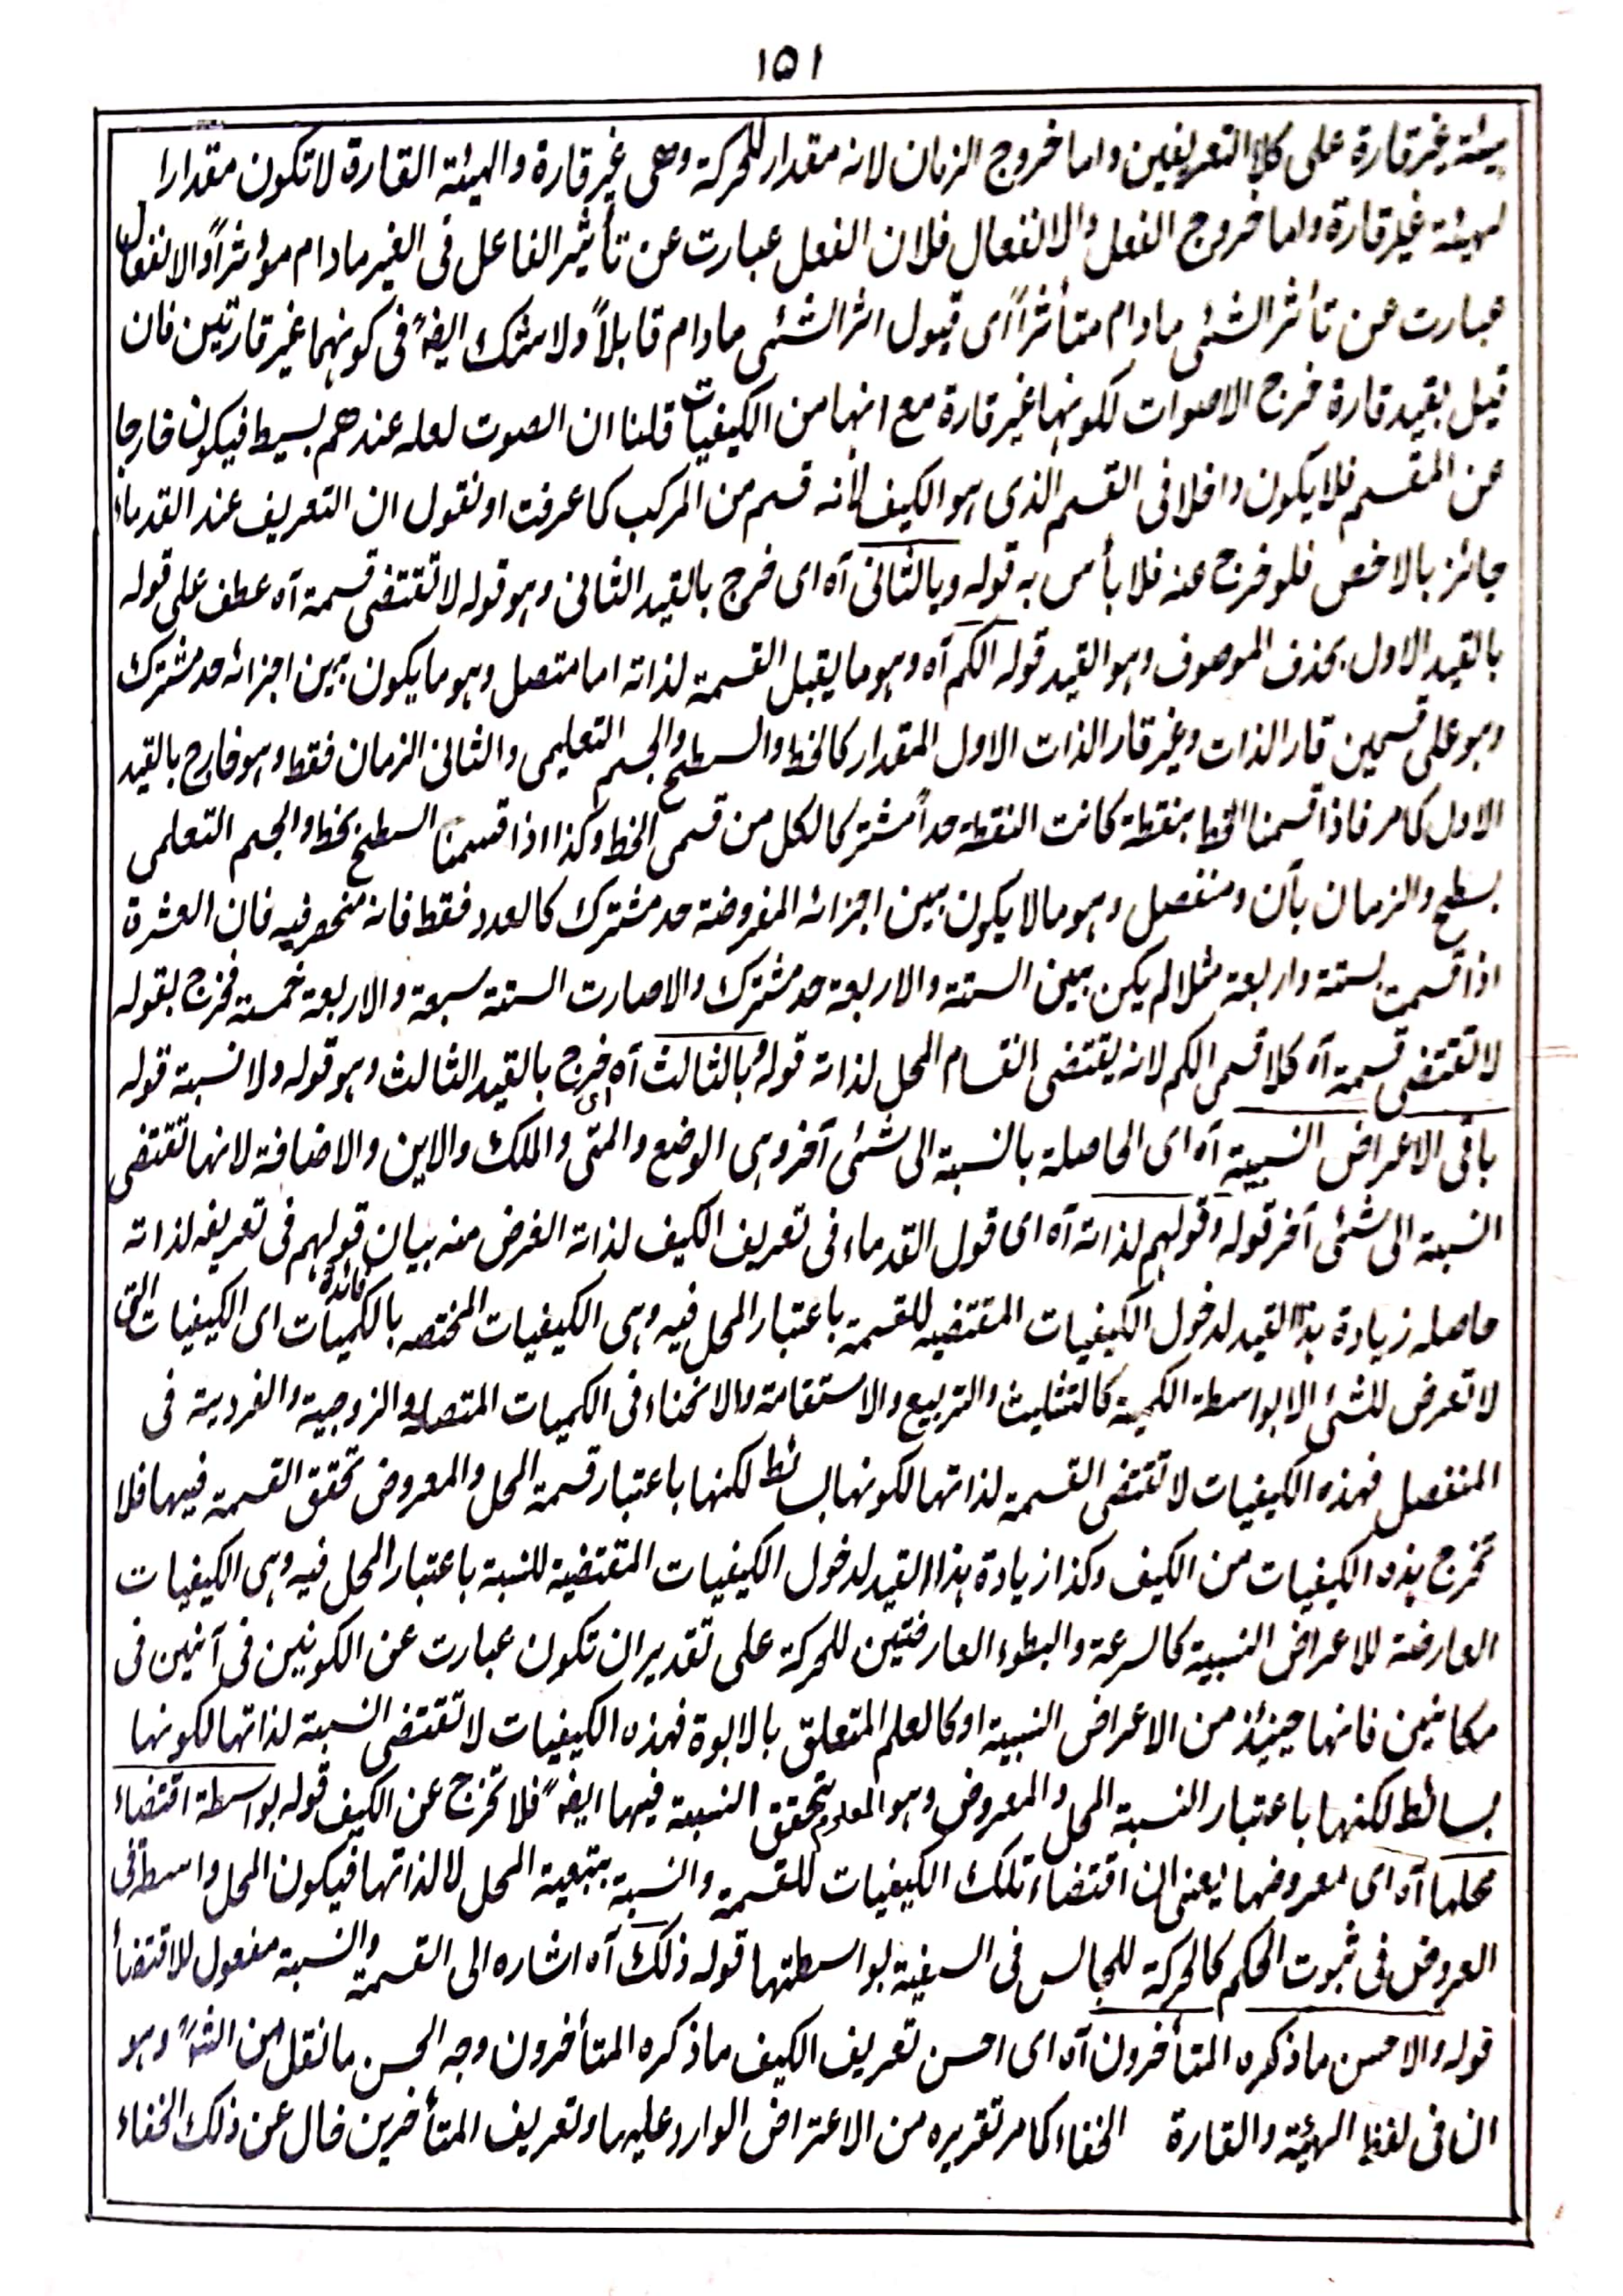 ١٥١
هيئة غير قارة على كلا التعريفين واما خروج الزمان لانه مقدار للحركة وهى غير قارة والهيئة القارة لا تكون مقدارا
لهيئة غير قارة واما خروج الفعل والانفعال فلان الفعل عبارت عن تأثير الفاعل فى الغير مادام مؤثراً والانفعال
عبارت عن تأثر الشئى مادام متأثراً اى قبول اثر الشئى مادام قابلاً ولا شك ايضاً فى كونهما غير قارتين فان
قيل بقيد قارة خرج الاصوات لكونها غير قارة مع انها من الكيفيات قلنا ان الصوت لعله عندهم بسيط فيكون خارجا
عن المقسم فلا يكون داخلا فى القسم الذى هو الكيف لأنه قسم من المركب كما عرفت او نقول ان التعريف عند القدماء
جائز بالاخص فلو خرج عنه فلا بأس به قوله وبالثانى آه اى خرج بالقيد الثانى وهو قوله لا تقتضى قسمة آه عطف على قوله
بالقيد الاول بحذف الموصوف وهو القيد قوله الكم آه وهو ما يقبل القسمة لذاته اما متصل وهو ما يكون بين اجزائه حد مشترك
وهو على قسمين قار الذات وغير قار الذات الاول المقدار كالخط والسطح والجسم التعليمى والثانى الزمان فقط وهو خارج بالقيد
الاول كما مر فاذا قسمنا الخط بنقطة كانت النقطة حداً مشتركا لكل من قسمى الخط وكذا اذا قسمنا السطح بخط والجسم التعلمى
بسطح والزمان بآن ومنفصل وهو مالا يكون بين اجزائه المفروضة حد مشترك كالعدد فقط فانه منحصر فيه فان العشرة
اذا قسمت بستة واربعة مثلا لم يكن بين الستة والاربعة حد مشترك والا صارت الستة سبعة والاربعة خمسة فخرج بقوله
لا تقتضى قسمة آه كلا قسمى الكم لانه يقتضى انقسام المحل لذاته قوله وبالثالث آه اى خرج بالقيد الثالث وهو قوله ولا نسبة قوله
باقى الاعراض النسبية آه اى الحاصلة بالنسبة الى شئى آخر وهى الوضع والمتى والملك والاين والاضافة لانها تقتضى
النسبة الى شئى آخر قوله وقولهم لذاته آه اى قول القدماء فى تعريف الكيف لذاته الغرض منه بيان فائدة قولهم فى تعريفه لذاته
حاصله زيادة هذا القيد لدخول الكيفيات المقتضيه للقسمة باعتبار المحل فيه وهى الكيفيات المختصه بالكميات اى الكيفيات التى
لا تعرض للشئى الا بواسطة الكمية كالتثليث والتربيع والاستقامة والانحناء فى الكميات المتصله والزوجية والفردية فى
المنفصل فهذه الكيفيات لا تقتضى القسمة لذاتها لكونها بسائط لكنها باعتبار قسمة المحل والمعروض تحقق القسمة فيها فلا
تخرج هذه الكيفيات من الكيف وكذا زيادة هذا القيد لدخول الكيفيات المقتضية للنسبة باعتبار المحل فيه وهى الكيفيات
العارضة للاعراض النسبية كالسرعة والبطوء العارضتين للحركة على تقدير ان تكون عبارت عن الكونين فى آنين فى
مكانين فانها حينئذ من الاعراض النسبية او كالعلم المتعلق بالابوة فهذه الكيفيات لا تقتضى النسبة لذاتها لكونها
بسائط لكنها باعتبار النسبة المحل والمعروض وهو المعلوم تحقق النسبة فيها ايضاً فلا تخرج عن الكيف قوله بواسطة اقتضاء
محلها آه اى معروضها يعنى ان اقتضاء تلك الكيفيات للقسمة والنسبة بتبعية المحل لا لذاتها فيكون المحل واسطة فى
العروض فى ثبوت الحكم كالحركة للجالس فى السفينة بواسطتها قوله ذلك آه اشاره الى القسمة والنسبة مفعول للاقتضأ
قوله والاحسن ما ذكره المتأخرون آه اى احسن تعريف الكيف ما ذكره المتأخرون وجه الحسن ما نقل من وهو
ان فى لفظ الهيئة والقارة الخفاء كما مر تقريره من الاعتراض الوارد عليهما وتعريف المتأخرين خال عن ذلك الخفاء